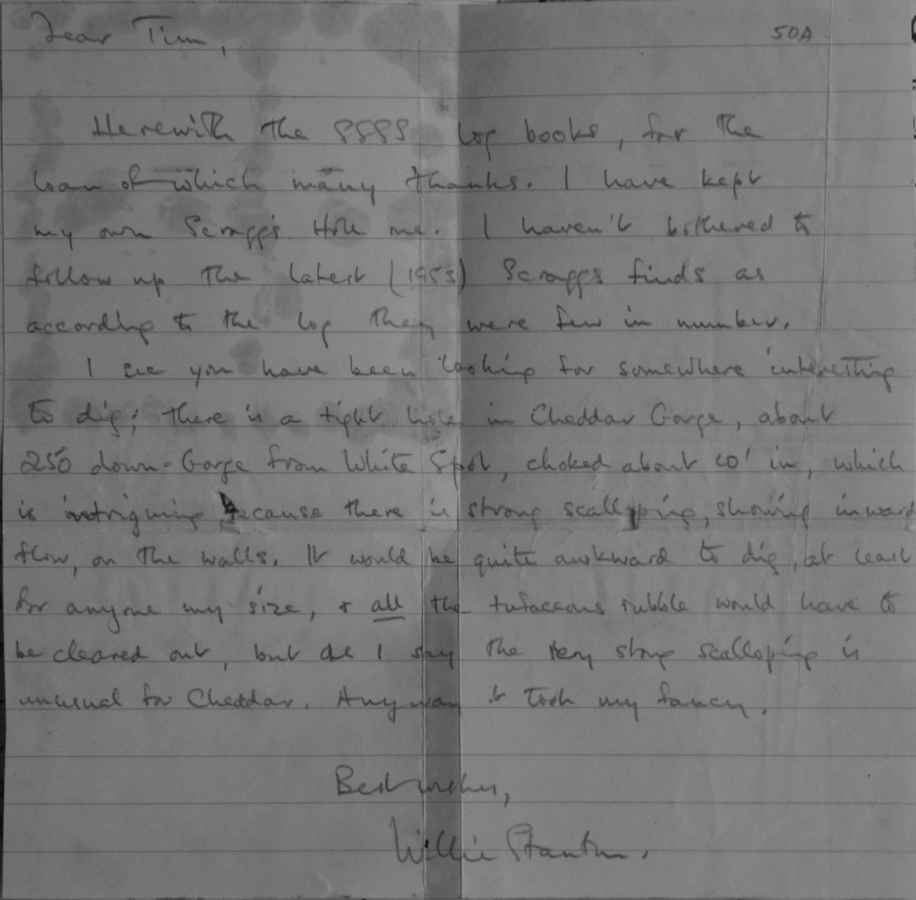 Dear Tim, 50A
Herewith the SSSS log books, for the
loan of which many thanks. I have kept
my own Scraggs Hole one. I haven't bothered to
follow up the latest (1953) Scraggs finds as
according to the log they were few in number.
I see you have been looking for somewhere interesting
to dig; there is a tight hole in Cheddar Gorge, about
250 down-Gorge from White Spot, choked about 10' in, which
is intriguing because there is strong scalloping, showing inward
flow, on the walls. It would be quite awkward to dig, at least
for anyone my size, & all the tufaceous rubble would have to
be cleared out, but as I say the very strong scalloping is
unusual for Cheddar. Anyway it took my fancy.
Best wishes,
Willie Stanton.